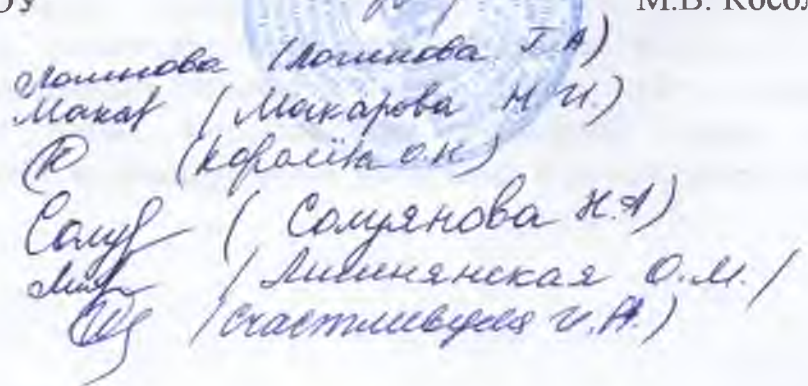 ОУ М.В. Косол
Логинова (Логинова Т.А)
Макар (Макарова Н.И.)
(Королёва О.Н)
Солуя (Солуянова Н.А)
(Лишнянская О.М./
/Счастливцева И.А.)